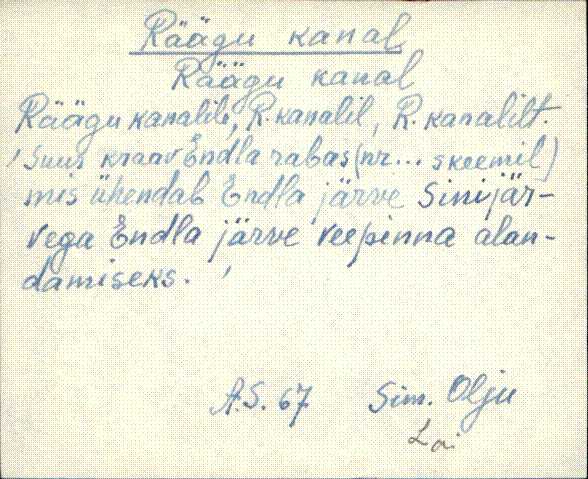 Räägu kanal
Räägu kanal
Räägu kanalile, R. kanalil, R. kanalilt.
/ Suur kraav Endla rabas (nr... skeemil)
mis ühendab Endla järve Sinijär-
vega Endla järve veepinna alan-
damiseks. /
A.S. 67 Sim. Olju
Lai